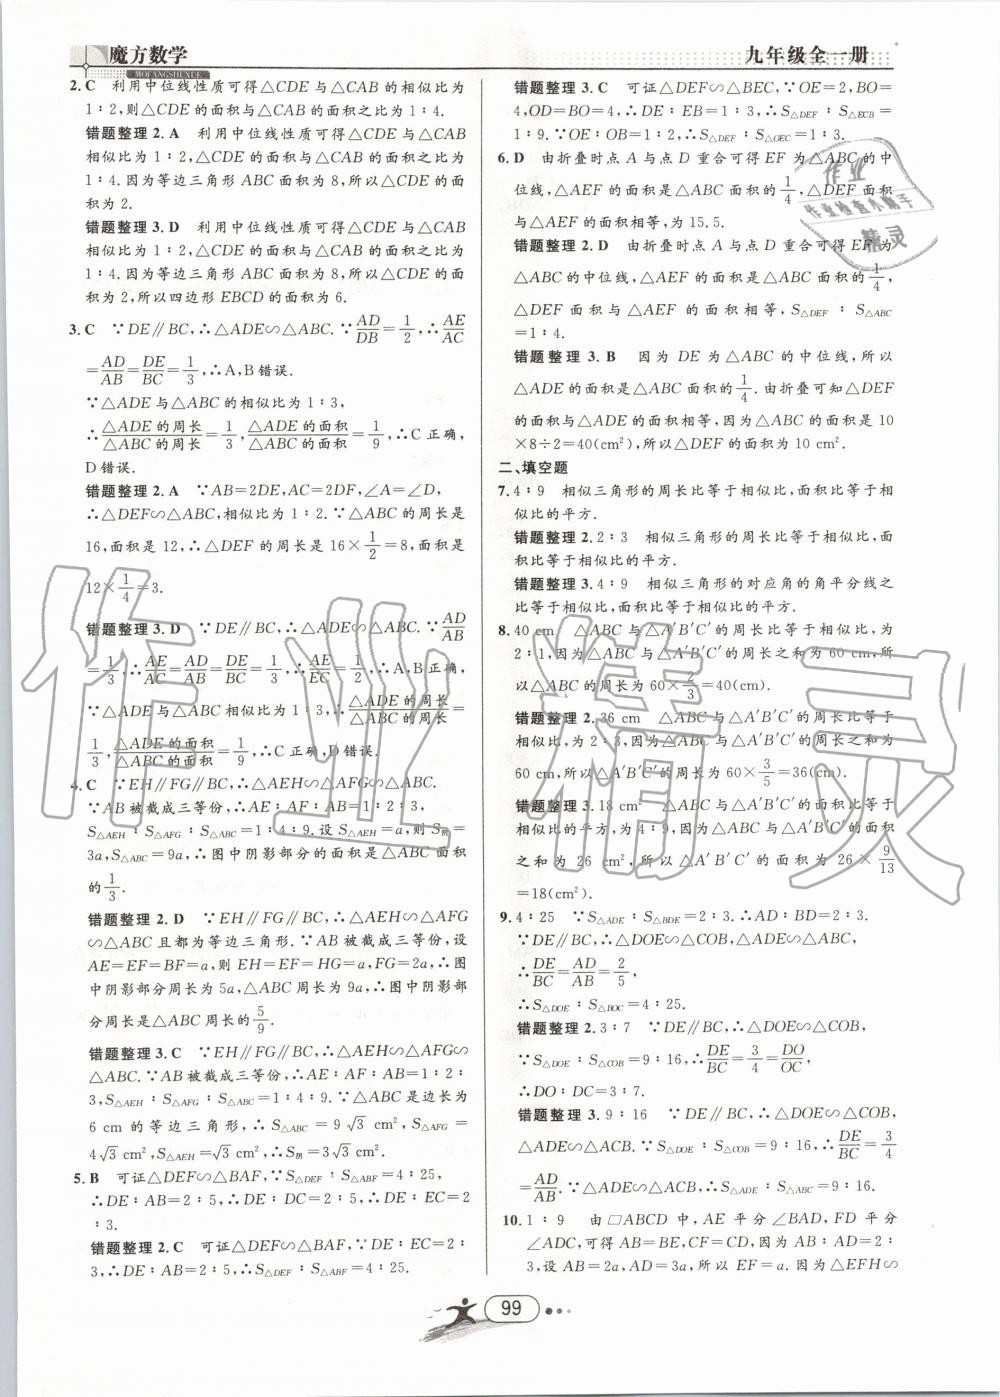 魔方数学
MOFANGSHUXUE
九年级全一册
2. C 利用中位线性质可得△CDE与△CAB的相似比为
1∶2,则△CDE的面积与△CAB的面积之比为1∶4.
错题整理 2. A 利用中位线性质可得△CDE与△CAB
相似比为1∶2,△CDE的面积与△CAB的面积之比为
1∶4.因为等边三角形ABC面积为8,所以△CDE的面
积为2.
错题整理 3. D 利用中位线性质可得△CDE与△CAB
相似比为1∶2,△CDE的面积与△CAB的面积之比为
1∶4.因为等边三角形ABC面积为8,所以△CDE的面
积为2,所以四边形EBCD的面积为6.
3. C ∵DE∥BC,∴△ADE∽△ABC.∵AD/DB=1/2,∴AE/AC
=AD/AB=DE/BC=1/3,∴A,B错误.
∵△ADE与△ABC的相似比为1∶3,
∴△ADE的周长/△ABC的周长=1/3,△ADE的面积/△ABC的面积=1/9,∴C正确,
D错误.
错题整理 2. A ∵AB=2DE,AC=2DF,∠A=∠D,
∴△DEF∽△ABC,相似比为1∶2.∵△ABC的周长是
16,面积是12,∴△DEF的周长是16×1/2=8,面积是
12×1/4=3.
错题整理 3. D ∵DE∥BC,∴△ADE∽△ABC.∵AD/AB
=1/3,∴AE/AC=AD/AB=DE/BC=1/3,∴AE/EC=1/2,∴A,B正确,
∵△ADE与△ABC的相似比为1∶3,∴△ADE的周长/△ABC的周长=
1/3,△ADE的面积/△ABC的面积=1/9,∴C正确,D错误.
4. C ∵EH∥FG∥BC,∴△AEH∽△AFG∽△ABC.
∵AB被截成三等份,∴AE∶AF∶AB=1∶2∶3,
S△AEH∶S△AFG∶S△ABC=1∶4∶9.设S△AEH=a,则S阴=
3a,S△ABC=9a,∴图中阴影部分的面积是△ABC面积
的1/3.
错题整理 2. D ∵EH∥FG∥BC,∴△AEH∽△AFG
∽△ABC且都为等边三角形.∵AB被截成三等份,设
AE=EF=BF=a,则EH=EF=HG=a,FG=2a,∴图
中阴影部分周长为5a,△ABC周长为9a,∴图中阴影部
分周长是△ABC周长的5/9.
错题整理 3. C ∵EH∥FG∥BC,∴△AEH∽△AFG∽
△ABC.∵AB被截成三等份,∴AE∶AF∶AB=1∶2∶
3,S△AEH∶S△AFG∶S△ABC=1∶4∶9.∵△ABC是边长为
6 cm的等边三角形,∴S△ABC=9√3 cm²,∴S△AFG=
4√3 cm²,S△AEH=√3 cm²,∴S阴=3√3 cm².
5. B 可证△DEF∽△BAF,∵S△DEF∶S△ABF=4∶25,
∴DE∶AB=2∶5,∴DE∶DC=2∶5,∴DE∶EC=2
∶3.
错题整理 2. C 可证△DEF∽△BAF,∵DE∶EC=2∶
3,∴DE∶AB=2∶5,∴S△DEF∶S△ABF=4∶25.
错题整理 3. C 可证△DEF∽△BEC,∵OE=2,BO=
4,OD=BO=4,∴DE∶EB=1∶3,∴S△DEF∶S△ECB=
1∶9.∵OE∶OB=1∶2,∴S△DEF∶S△OEC=1∶3.
6. D 由折叠时点A与点D重合可得EF为△ABC的中
位线,△AEF的面积是△ABC面积的1/4,△DEF面积
与△AEF的面积相等,为15.5.
错题整理 2. D 由折叠时点A与点D重合可得EF为
△ABC的中位线,△AEF的面积是△ABC面积的1/4,
△DEF面积与△AEF的面积相等,S△DEF∶S△ABC
=1∶4.
错题整理 3. B 因为DE为△ABC的中位线,所以
△ADE的面积是△ABC面积的1/4.由折叠可知△DEF
的面积与△ADE的面积相等,因为△ABC的面积为10
×8÷2=40(cm²),所以△DEF的面积为10 cm².
二、填空题
7. 4∶9 相似三角形的周长比等于相似比,面积比等于相
似比的平方.
错题整理 2. 2∶3 相似三角形的周长比等于相似比,面
积比等于相似比的平方.
错题整理 3. 4∶9 相似三角形的对应角的角平分线之
比等于相似比,面积比等于相似比的平方.
8. 40 cm △ABC与△A′B′C′的周长比等于相似比,为
2∶1,因为△ABC与△A′B′C′的周长之和为60 cm,所
以△ABC的周长为60×2/3=40(cm).
错题整理 2. 36 cm △ABC与△A′B′C′的周长比等于相似
比,为2∶3,因为△ABC与△A′B′C′的周长之和为
60 cm,所以△A′B′C′的周长为60×3/5=36(cm).
错题整理 3. 18 cm² △ABC与△A′B′C′的面积比等于
相似比的平方,为4∶9,因为△ABC与△A′B′C′的面积
之和为26 cm²,所以△A′B′C′的面积为26×9/13
=18(cm²).
9. 4∶25 ∵S△ADE∶S△BDE=2∶3,∴AD∶BD=2∶3.
∵DE∥BC,∴△DOE∽△COB,△ADE∽△ABC,
∴DE/BC=AD/AB=2/5,
∴S△DOE∶S△BOC=4∶25.
错题整理 2. 3∶7 ∵DE∥BC,∴△DOE∽△COB,
∵S△DOE∶S△COB=9∶16,∴DE/BC=3/4=DO/OC,
∴DO∶DC=3∶7.
错题整理 3. 9∶16 ∵DE∥BC,∴△DOE∽△COB,
△ADE∽△ACB.∵S△DOE∶S△COB=9∶16,∴DE/BC=3/4
=AD/AB.∵△ADE∽△ACB,∴S△ADE∶S△ABC=9∶16.
10. 1∶9 由▱ABCD中,AE平分∠BAD,FD平分
∠ADC,可得AB=EB,CF=CD,因为AB∶AD=2∶
3,设AB=2a,AD=3a,所以EF=a.因为△EFH∽
99
作业
作业检查小助手
精灵
作业精灵